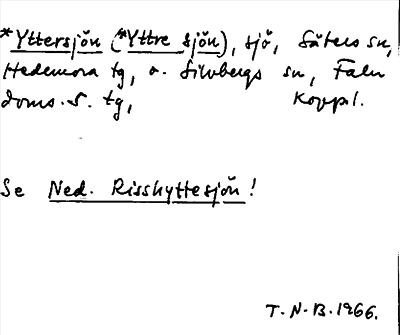 *Yttersjön (*Yttre sjön), sjö, Säters sn,
Hedemora tg, o. Silvbergs sn, Falu
doms. S. tg, Koppl.
Se Ned. Risshyttesjön!
T.N.B. 1966.